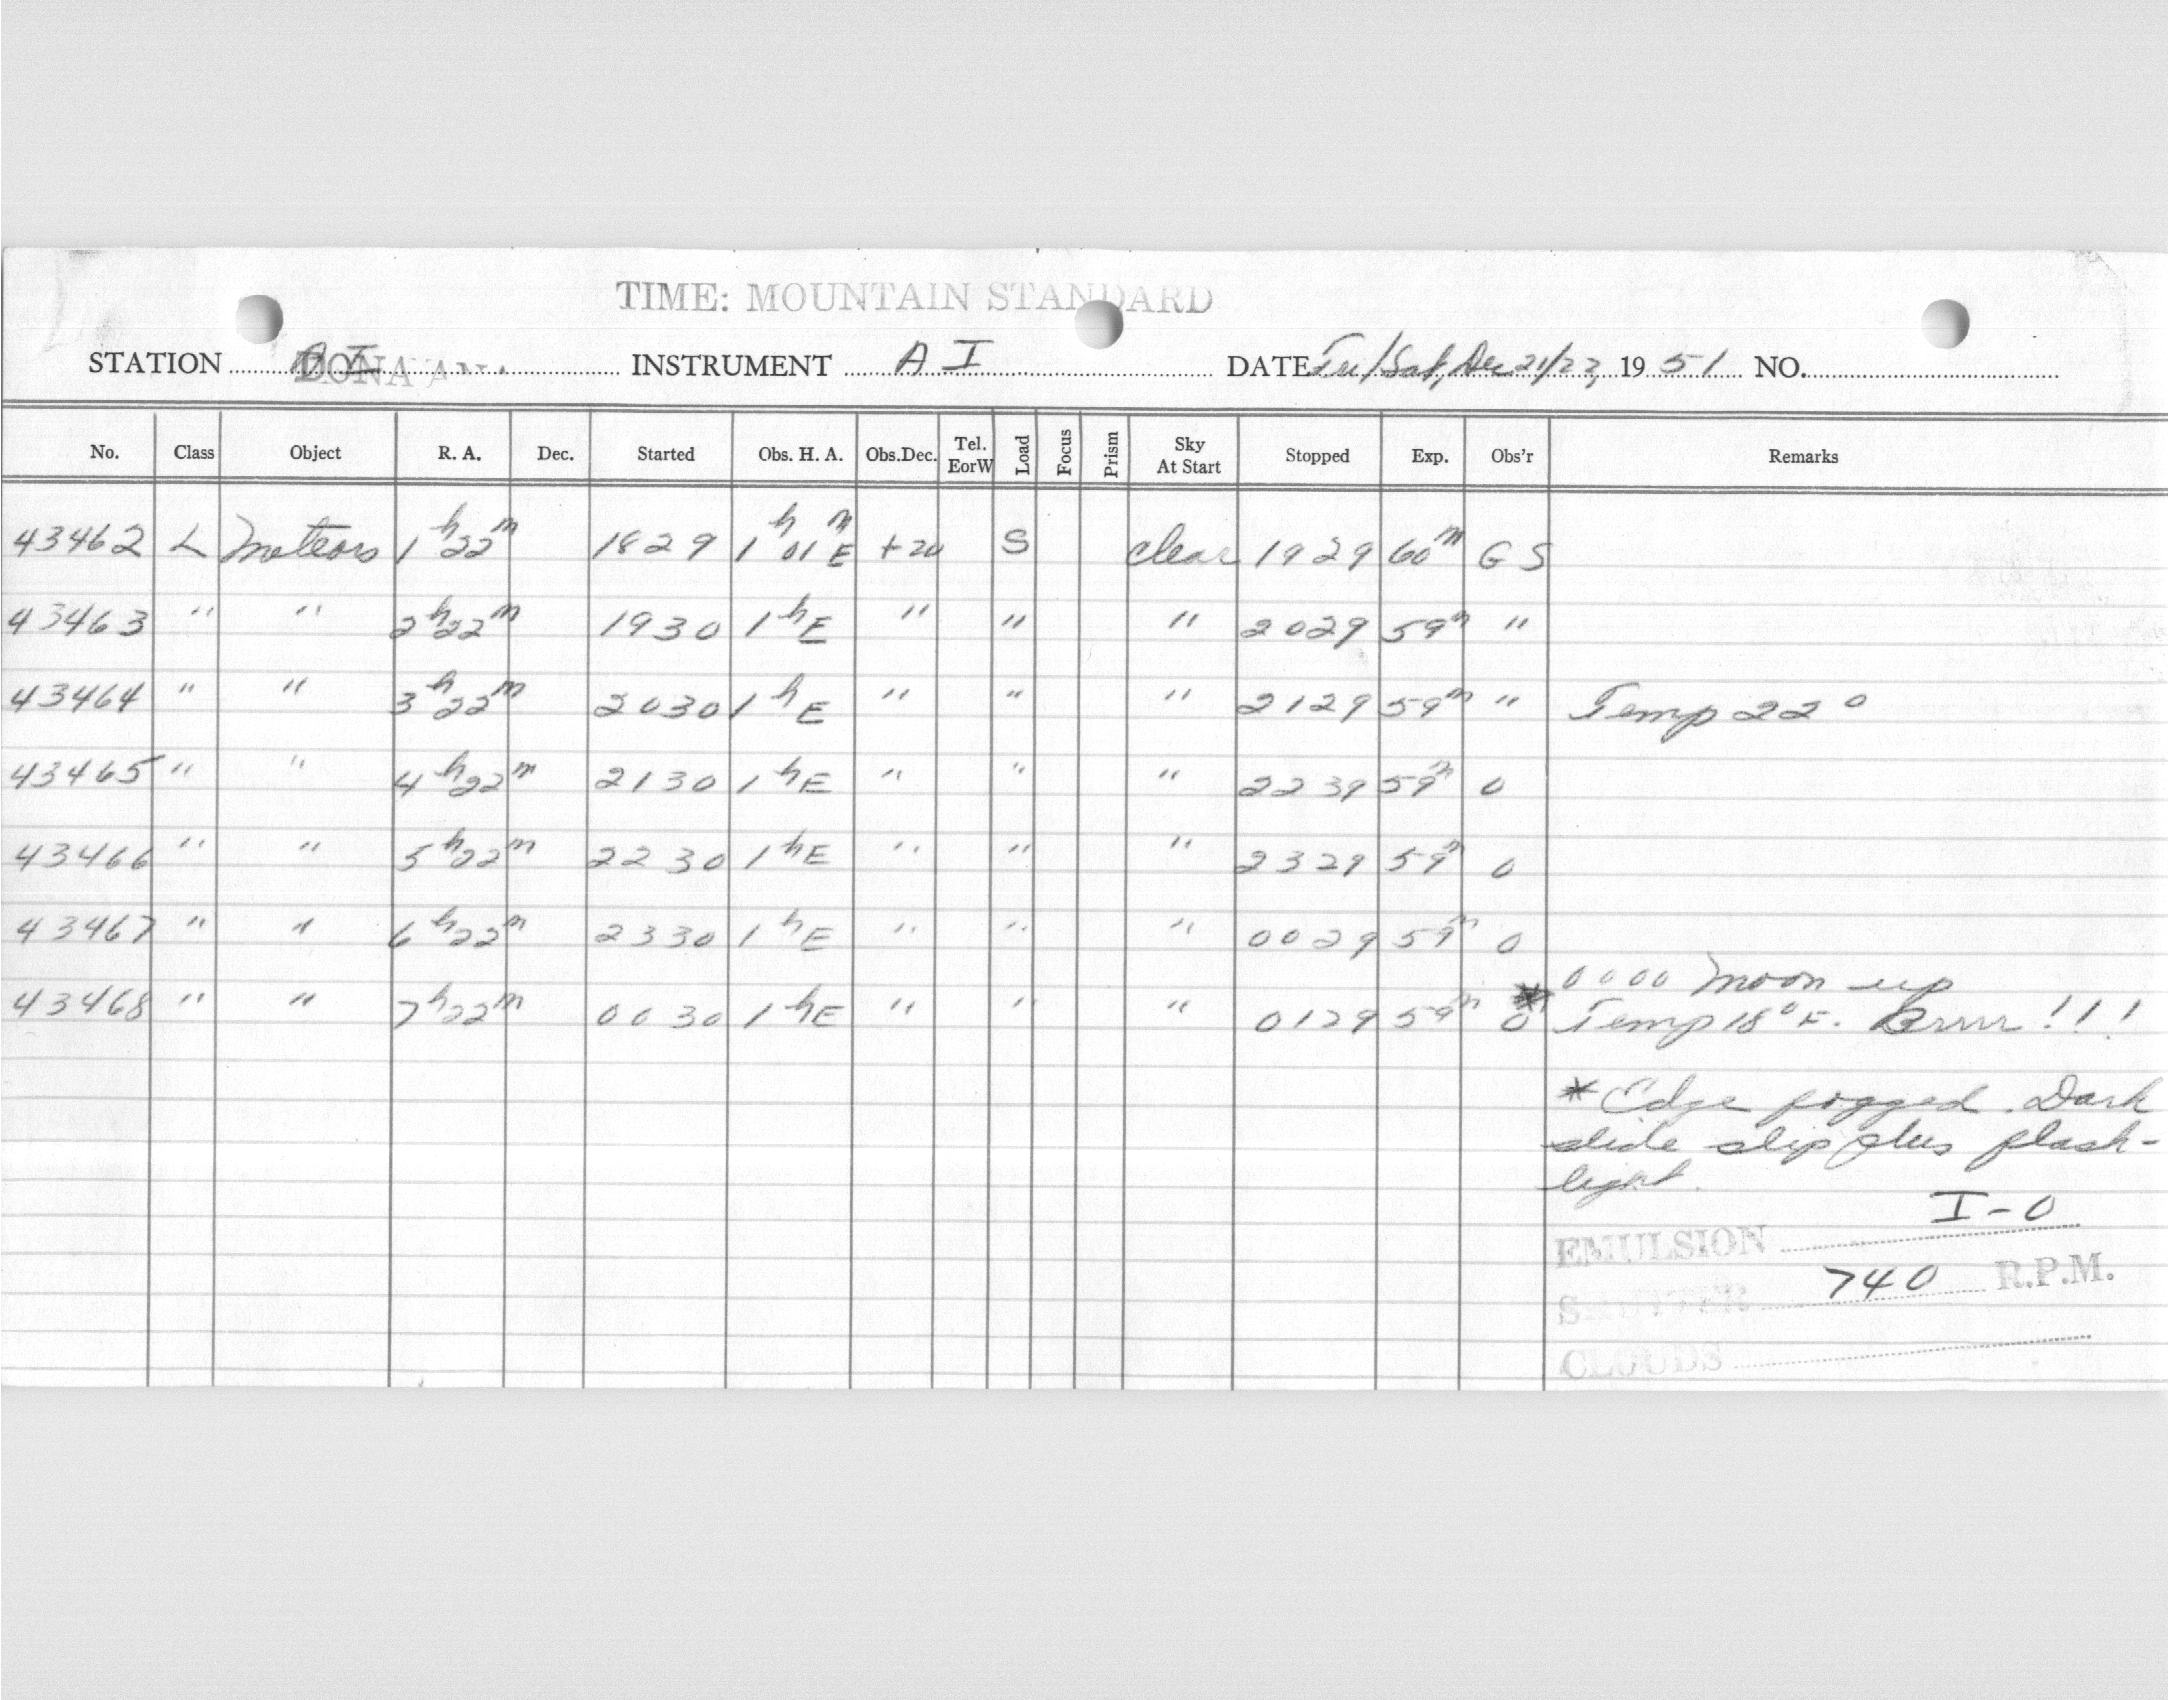 TIME: MOUNTAIN STANDARD
STATION DONA ANA INSTRUMENT A I DATE Fri/Sat, Dec 21/22, 1951 NO.
No. Class Object R. A. Dec. Started Obs. H. A. Obs.Dec. Tel. EorW Load Focus Prism Sky At Start Stopped Exp. Obs'r Remarks
43462 L Meteors 1h 22m 1829 1h 01m E +20 S clear 1929 60m G S
43463 " " 2h 22m 1930 1h E " " " 2029 59m "
43464 " " 3h 22m 2030 1h E " " " 2129 59m " Temp 22°
43465 " " 4h 22m 2130 1h E " " " 2239 59m 0
43466 " " 5h 22m 2230 1h E " " " 2329 59m 0
43467 " " 6h 22m 2330 1h E " " " 0029 59m 0
0000 Moon up
43468 " " 7h 22m 0030 1h E " " " 0129 59m 0* Temp 18° F. Brrrr!!!
* Edge fogged. Dark
slide slip plus flash-
light.
EMULSION I-O
SHUTTER 740 R.P.M.
CLOUDS